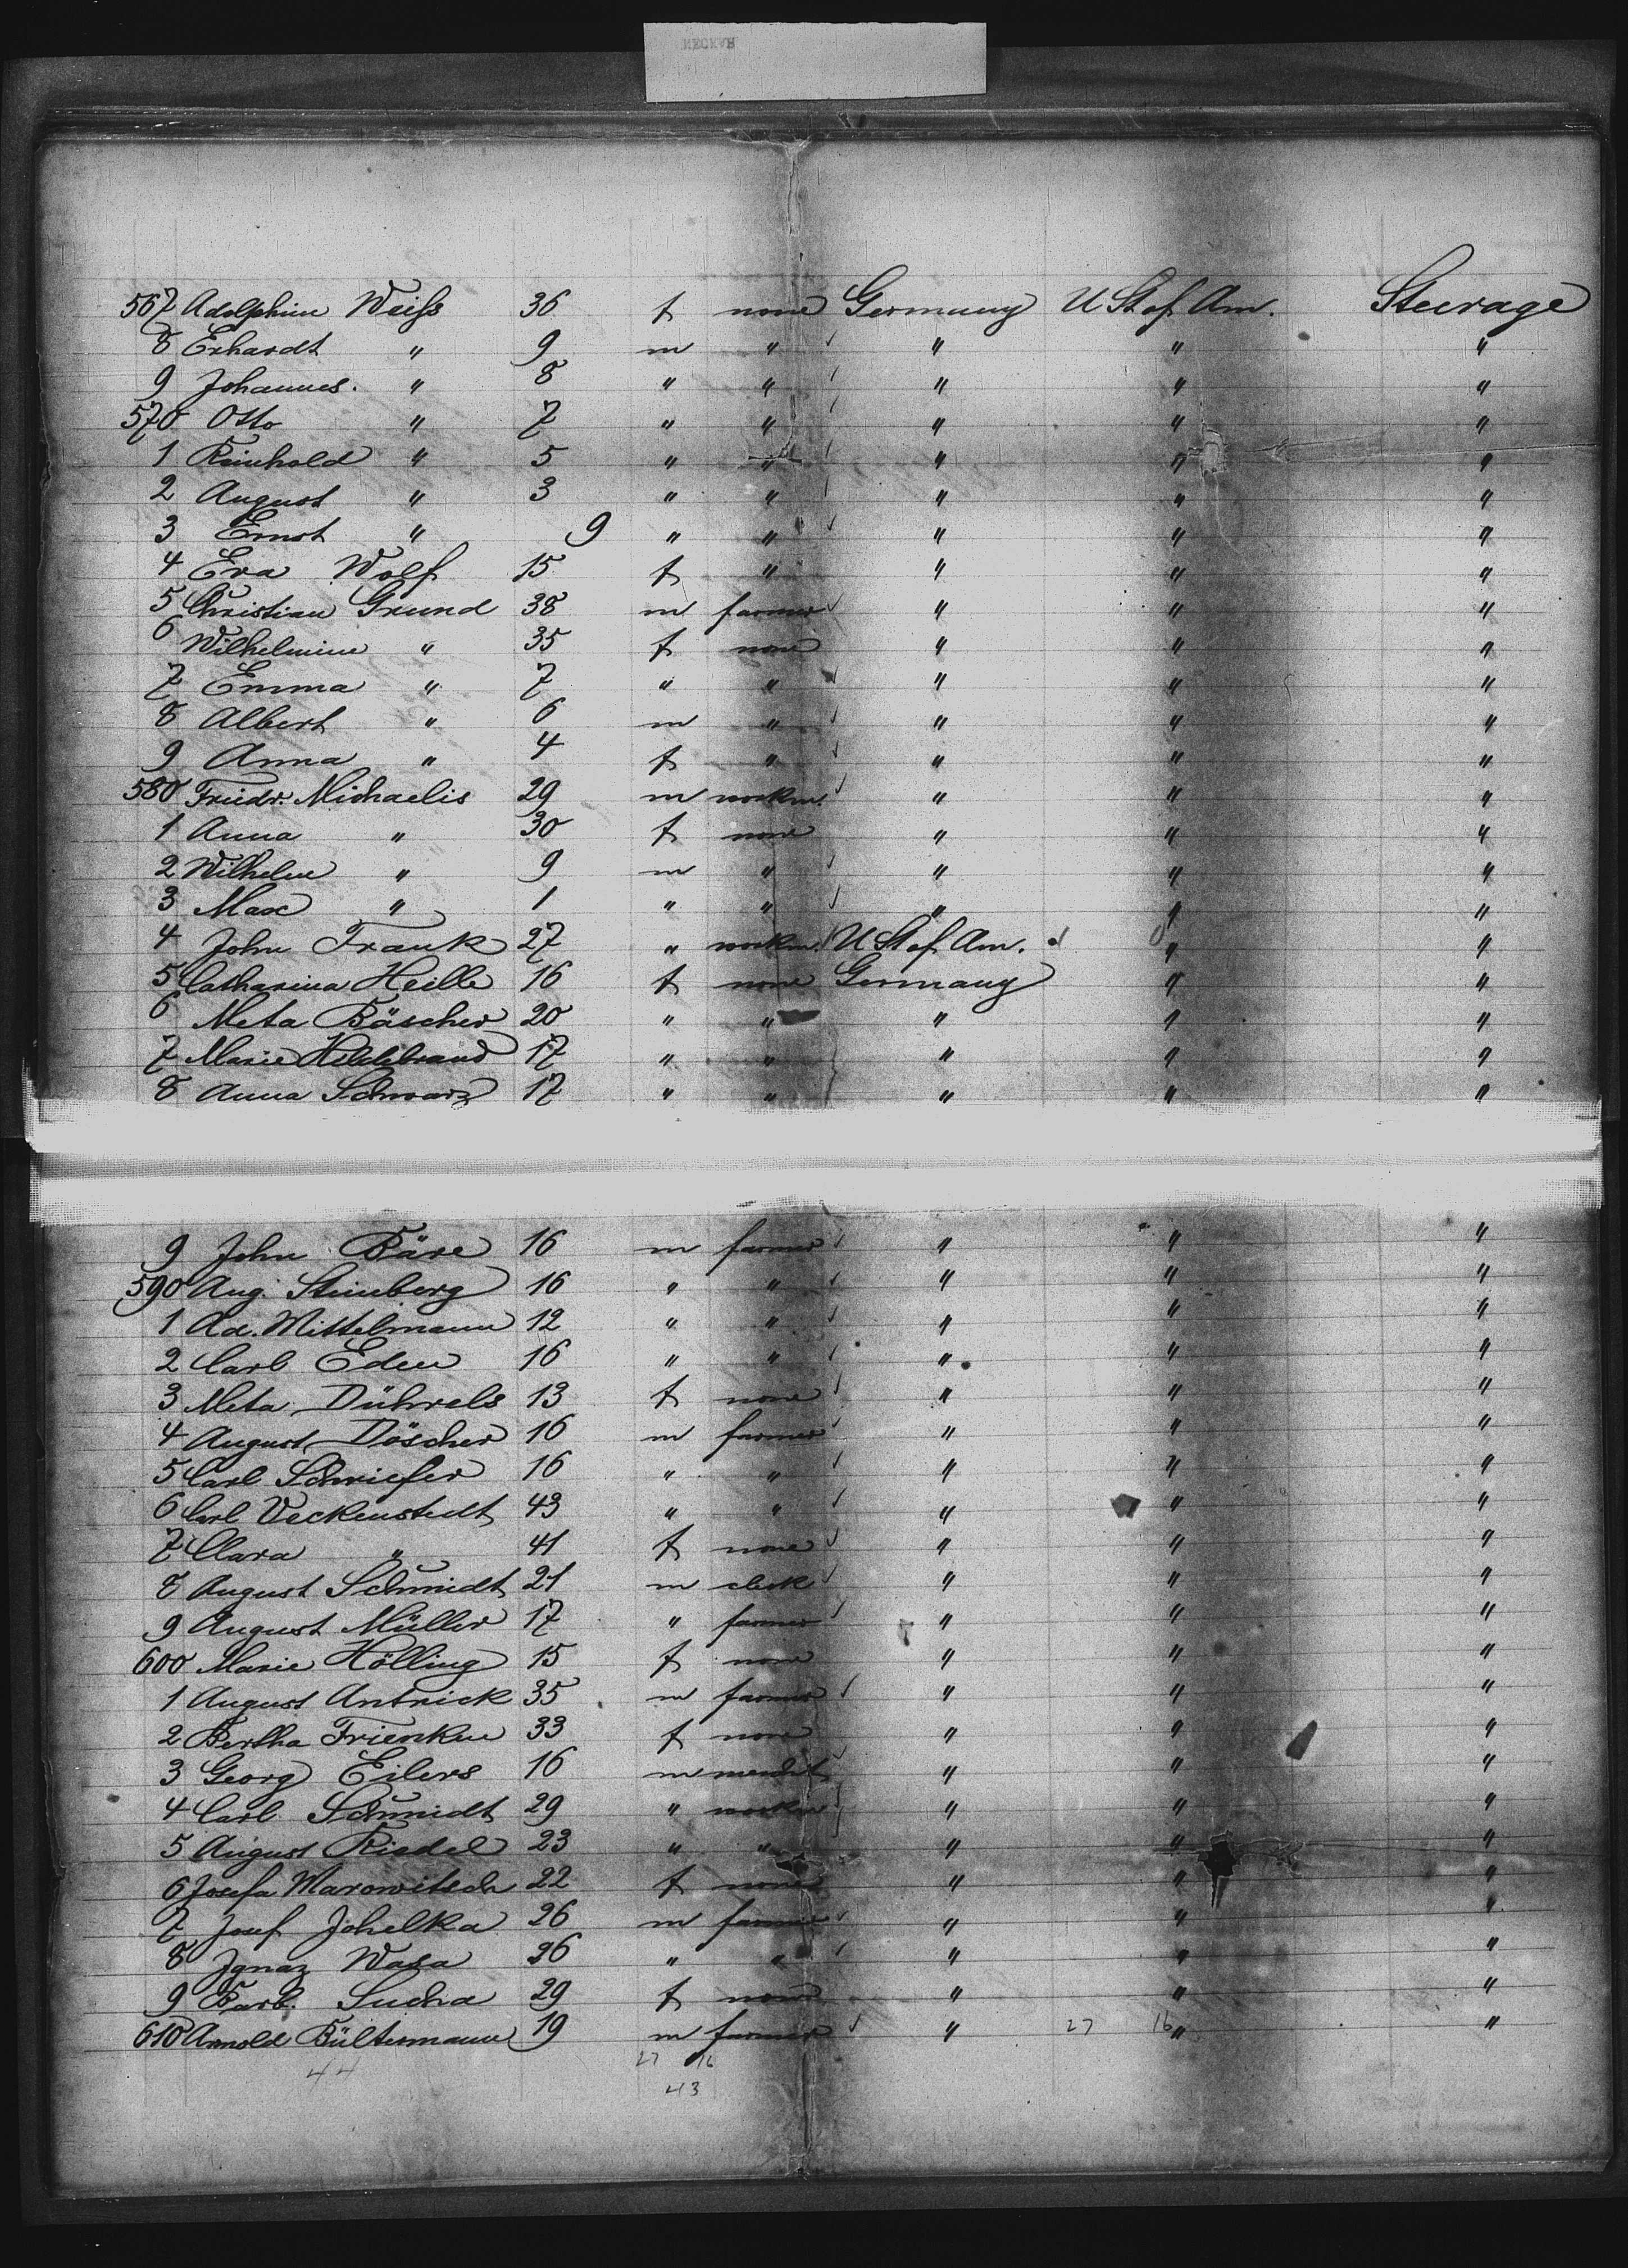 NECKAR
567 Adolphine Weiss 36 f none Germany U St of Am. Steerage
8 Erhardt " 9 m " " " "
9 Johannes. " 8 " " " " "
570 Otto " 7 " " " " "
1 Reinhold " 5 " " " " "
2 August " 3 " " " " "
3 Ernst " 9 " " " " "
4 Eva Wolf 15 f " " " "
5 Christian Grund 38 m farmer " " "
6 Wilhelmine " 35 f none " " "
7 Emma " 7 " " " " "
8 Albert " 6 m " " " "
9 Anna " 4 f " " " "
580 Friedr. Michaelis 29 m workm. " " "
1 Anna " 30 f none " " "
2 Wilhelm " 9 m " " " "
3 Max " 1 " " " " "
4 John Frank 27 " workm. U St of Am. " "
5 Catharina Heille 16 f none Germany " "
6 Meta Bäscher 20 " " " " "
7 Marie Hildebrand 17 " " " " "
8 Anna Schwarz 17 " " " " "
9 John Bäre 16 m farmer " " "
590 Aug. Steinberg 16 " " " " "
1 Ad. Mittelmann 12 " " " " "
2 Carl Eden 16 " " " " "
3 Meta Dührels 13 f none " " "
4 August Döscher 16 m farmer " " "
5 Carl Schriefer 16 " " " " "
6 Carl Veckenstedt 43 " " " " "
7 Clara " 41 f none " " "
8 August Schmidt 21 m clerk " " "
9 August Müller 17 " farmer " " "
600 Marie Hölling 15 f none " " "
1 August Antrick 35 m farmer " " "
2 Bertha Frienken 33 f none " " "
3 Georg Eilers 16 m merch't " " "
4 Carl Schmidt 29 " workm " " "
5 August Riedel 23 " " " " "
6 Josefa Marowitsch 22 f none " " "
7 Josef Johelka 26 m farmer " " "
8 Ignaz Wasa 26 " " " " "
9 Barb. Sucha 29 f none " " "
610 Arnold Bültemann 19 m farmer " 27 16 " "
44 27 16
43